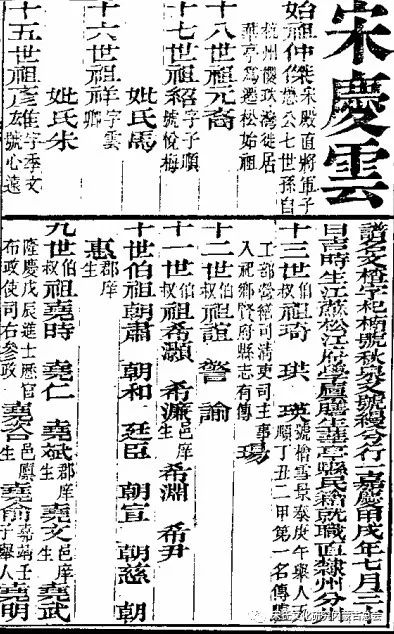 宋慶雲
始祖仲傑
宋殿直將軍子
懋公七世孫自
杭州儇政灣徙居
華亭爲遷松始祖
十八世祖元裔
十七世祖紹 字子順
號悅梅
妣氏馬
十六世祖祥 字雲
卿
妣氏朱
十五世祖彥雄 字季文
號心遠
譜名文椿字杞楠號秋又號縵分行一嘉慶甲戌年七月三十
日吉時生江蘇松江府學廩膳生華亭縣民籍就職直隸州分州
十三世伯叔祖琦 珙 瑛 號檜雪景泰庚午舉人天
順丁丑二甲第一名傳臚
工部營繕司清吏司主事
入祀鄉賢府縣志有傳
瑒
十二世伯叔祖誼 警 諭
十一世伯叔祖希灝 希濂 邑庠生 希淵 希尹
十世伯叔祖朝肅 朝和 廷臣 朝宣 朝慈 朝
惠 郡庠生
九世伯叔祖堯時 堯仁 堯斌 郡庠生 堯文 邑庠生 堯武
隆慶戊辰進士歷官
布政使司右參政
堯咨 邑廩生 堯俞 嘉靖壬子舉人 堯明